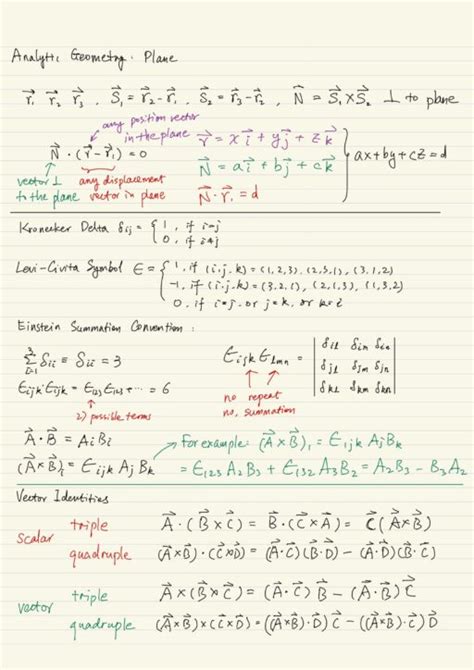 Analytic Geometry: Plane
r⃗₁ r⃗₂ r⃗₃ , S⃗₁ = r⃗₂ - r⃗₁ , S⃗₂ = r⃗₃ - r⃗₂ , N⃗ = S⃗₁ × S⃗₂ ⊥ to plane
any position vector
in the plane
N⃗ · (r⃗ - r⃗₁) = 0
vector ⊥
to the plane
any displacement
vector in plane
r⃗ = x i⃗ + y j⃗ + z k⃗
N⃗ = a i⃗ + b j⃗ + c k⃗
N⃗ · r⃗₁ = d
} ax + by + cz = d
Kronecker Delta δij = { 1, if i=j
0, if i≠j
Levi-Civita Symbol ϵ = { 1, if (i,j,k) = (1,2,3), (2,3,1), (3,1,2)
-1, if (i,j,k) = (3,2,1), (2,1,3), (1,3,2)
0, if i=j, or j=k, or k=i
Einstein Summation Convention:
Σ³ᵢ₌₁ δii ≡ δii = 3
ϵijk ϵijk = ϵ123 ϵ123 + ··· = 6
possible terms
ϵijk ϵlmn = | δil δim δin |
| δjl δjm δjn |
| δkl δkm δkn |
no repeat
no summation
A⃗ · B⃗ = AiBi
(A⃗ × B⃗)i = ϵijk Aj Bk
For example: (A⃗ × B⃗)₁ = ϵ1jk AjBk
= ϵ123 A2B3 + ϵ132 A3B2 = A2B3 - B2A3
Vector Identities
scalar
triple A⃗ · (B⃗ × C⃗) = B⃗ · (C⃗ × A⃗) = C⃗ (A⃗ × B⃗)
quadruple (A⃗ × B⃗) · (C⃗ × D⃗) = (A⃗ · C⃗)(B⃗ · D⃗) - (A⃗ · D⃗)(B⃗ · C⃗)
vector
triple A⃗ × (B⃗ × C⃗) = (A⃗ · C⃗) B⃗ - (A⃗ · B⃗) C⃗
quadruple (A⃗ × B⃗) × (C⃗ × D⃗) = ((A⃗ × B⃗) · D⃗) C⃗ - ((A⃗ × B⃗) · C⃗) D⃗